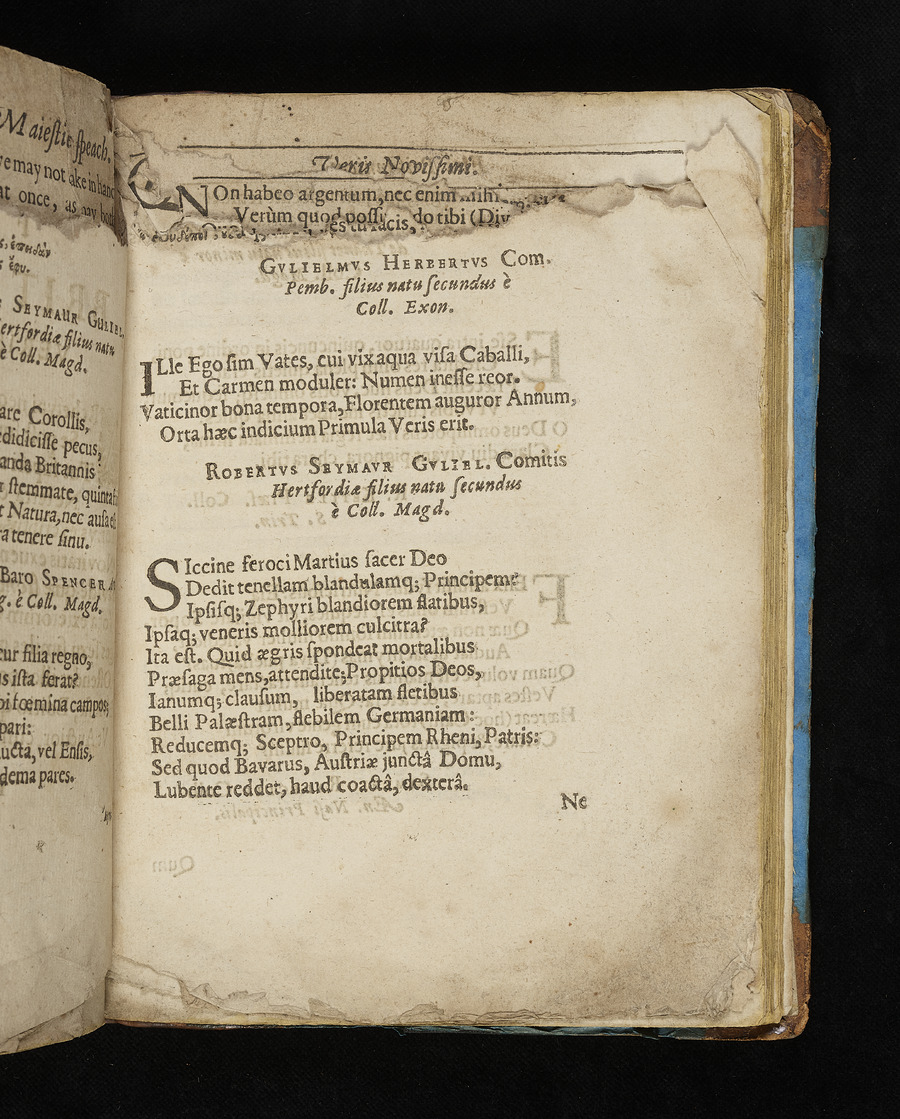 Maieſtie ſpeach.
at once, as
ἐπειδὰν
SEYMAUR GULIEL.
ertfordiæ filius natu
è Coll. Magd.
are Corollis,
edidiciſſe pecus,
anda Britannis
ſtemmate,
t Natura, nec
ra tenere ſinu.
Baro SPENCER
è Coll. Magd.
cur filia regno,
us iſta ferat?
fœmina campos,
pari:
ucta, vel Enſis,
dema pares.
Veris Noviſſimi.
NOn habeo argentum, nec enim mihi
Verùm quod poſſū, do tibi (Div
facis,
GVLIELMVS HERBERTVS Com.
Pemb. filius natu ſecundus è
Coll. Exon.
ILle Ego ſim Vates, cui vix aqua viſa Caballi,
Et Carmen moduler: Numen ineſſe reor.
Vaticinor bona tempora, Florentem auguror Annum,
Orta hæc indicium Primula Veris erit.
ROBERTVS SEYMAVR GVLIEL. Comitis
Hertfordiæ filius natu ſecundus
è Coll. Magd.
SIccine feroci Martius ſacer Deo
Dedit tenellam blandulamq; Principem?
Ipſiſq; Zephyri blandiorem flatibus,
Ipſaq; veneris molliorem culcitra?
Ita eſt. Quid ægris ſpondeat mortalibus
Præſaga mens, attendite; Propitios Deos,
Ianumq; clauſum, liberatam fletibus
Belli Palæſtram, flebilem Germaniam:
Reducemq; Sceptro, Principem Rheni, Patris:
Sed quod Bavarus, Auſtriæ junctâ Domu,
Lubente reddet, haud coactâ, dexterâ.
Ne